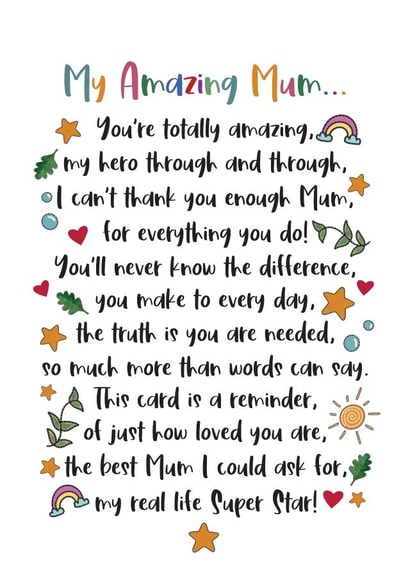 My Amazing Mum...
You're totally amazing,
my hero through and through,
I can't thank you enough Mum,
for everything you do!
You'll never know the difference,
you make to every day,
the truth is you are needed,
so much more than words can say.
This card is a reminder,
of just how loved you are,
the best Mum I could ask for,
my real life Super Star!